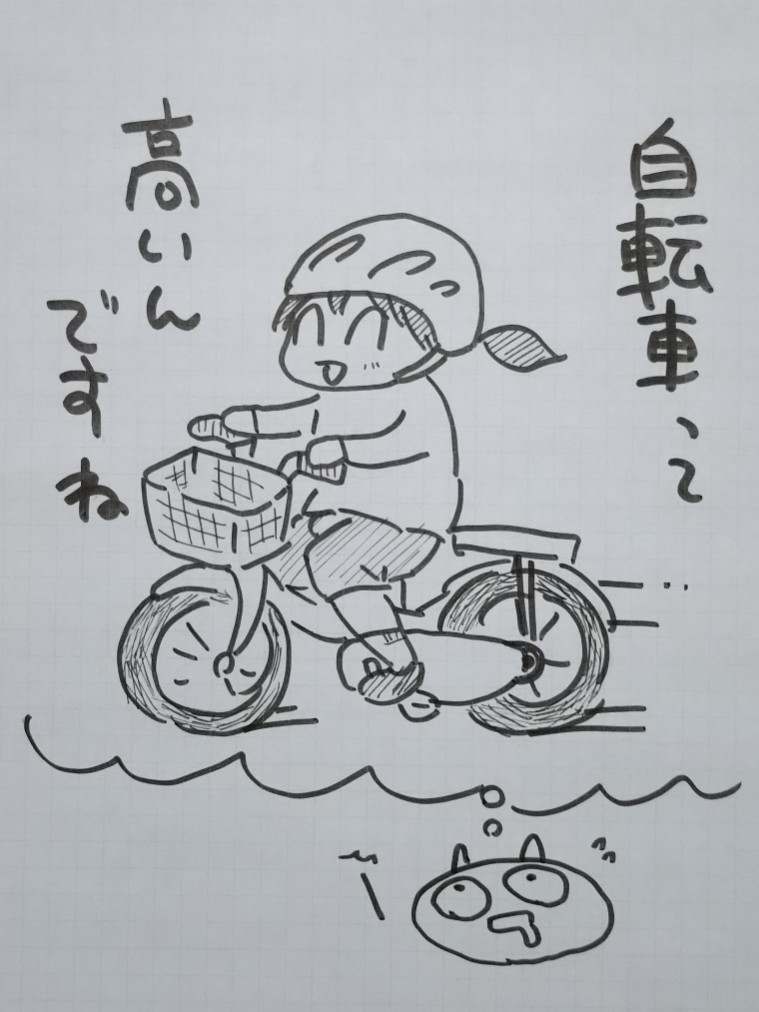 自転車って
高いん
ですね